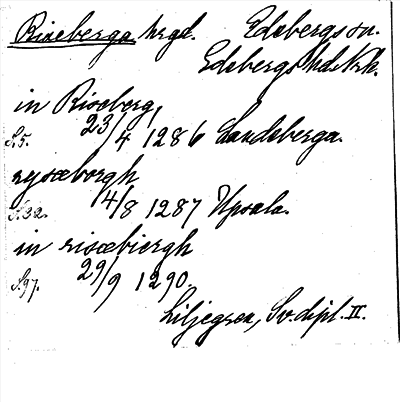 Riseberga hrgd. Edsbergs sn.
Edsbergs hd. Nrk.
in Riseberg,
S. 5. 23/4 1286 Landeberga.
rysæborgh
S. 32. 4/8 1287 Upsala.
in risæbiergh
S. 97. 29/9 1290.
Liljegren, Sv. dipl. II.